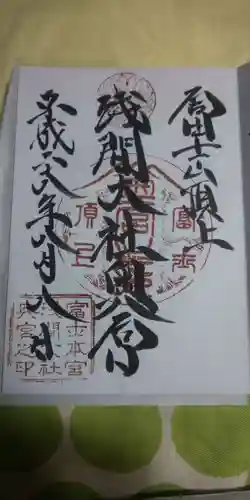 富士山頂上
淺間大社奥宮
平成二十八年八月八日
富士
頂上
富士本宮
淺間大社
奥宮之印